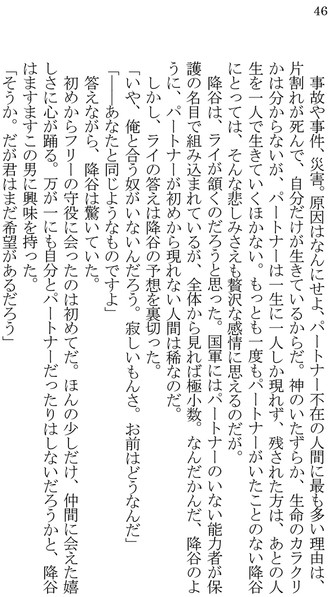 46
　事故や事件、災害。原因はなんにせよ、パートナー不在の人間に最も多い理由は、
片割れが死んで、自分だけが生きているからだ。神のいたずらか、生命のカラクリ
かは分からないが、パートナーは一生に一人しか現れず、残された方は、あとの人
生を一人で生きていくほかない。もっとも一度もパートナーがいたことのない降谷
にとっては、そんな悲しみさえも贅沢な感情に思えるのだが。
　降谷は、ライが頷くのだろうと思った。国軍にはパートナーのいない能力者が保
護の名目で組み込まれているが、全体から見れば極小数。なんだかんだ、降谷のよ
うに、パートナーが初めから現れない人間は稀なのだ。
　しかし、ライの答えは降谷の予想を裏切った。
「いや、俺と合う奴がいないんだろう。寂しいもんさ。お前はどうなんだ」
「――あなたと同じようなものですよ」
　答えながら、降谷は驚いていた。
　初めからフリーの守役に会ったのは初めてだ。ほんの少しだけ、仲間に会えた嬉
しさに心が踊る。万が一にも自分とパートナーだったりはしないだろうかと、降谷
はますますこの男に興味を持った。
「そうか。だが君はまだ希望があるだろう」